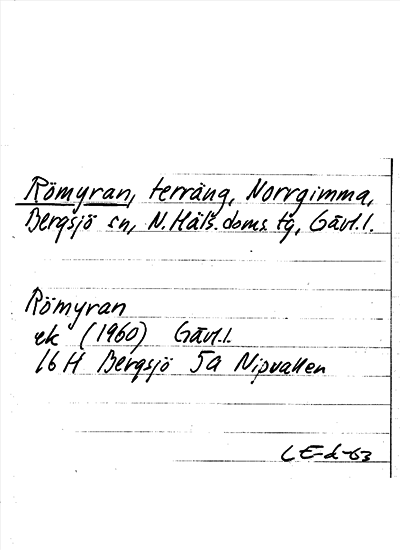 Römyran, terräng, Norrgimma,
Bergsjö sn, N. Häls. doms. tg, Gävl.l.
Römyran
ek (1960) Gävl.l.
16 H Bergsjö 5a Nipvallen
LE-d-63